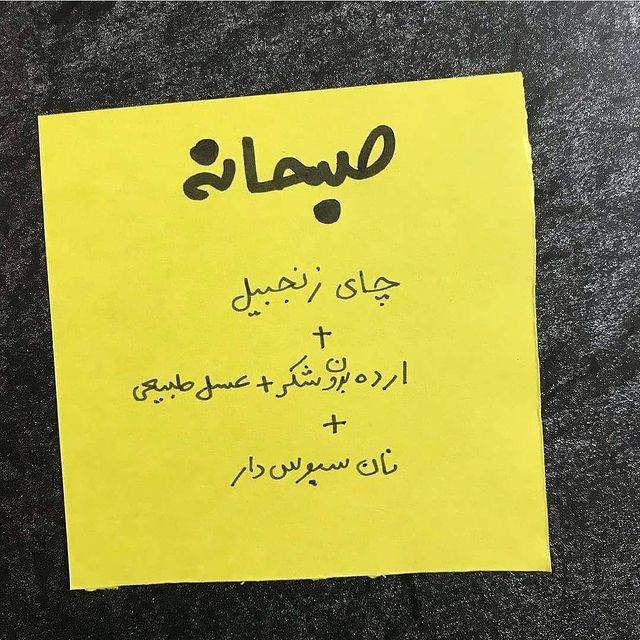 صبحانه
چای زنجبیل
+
ارده بدون شکر + عسل طبیعی
+
نان سبوس دار